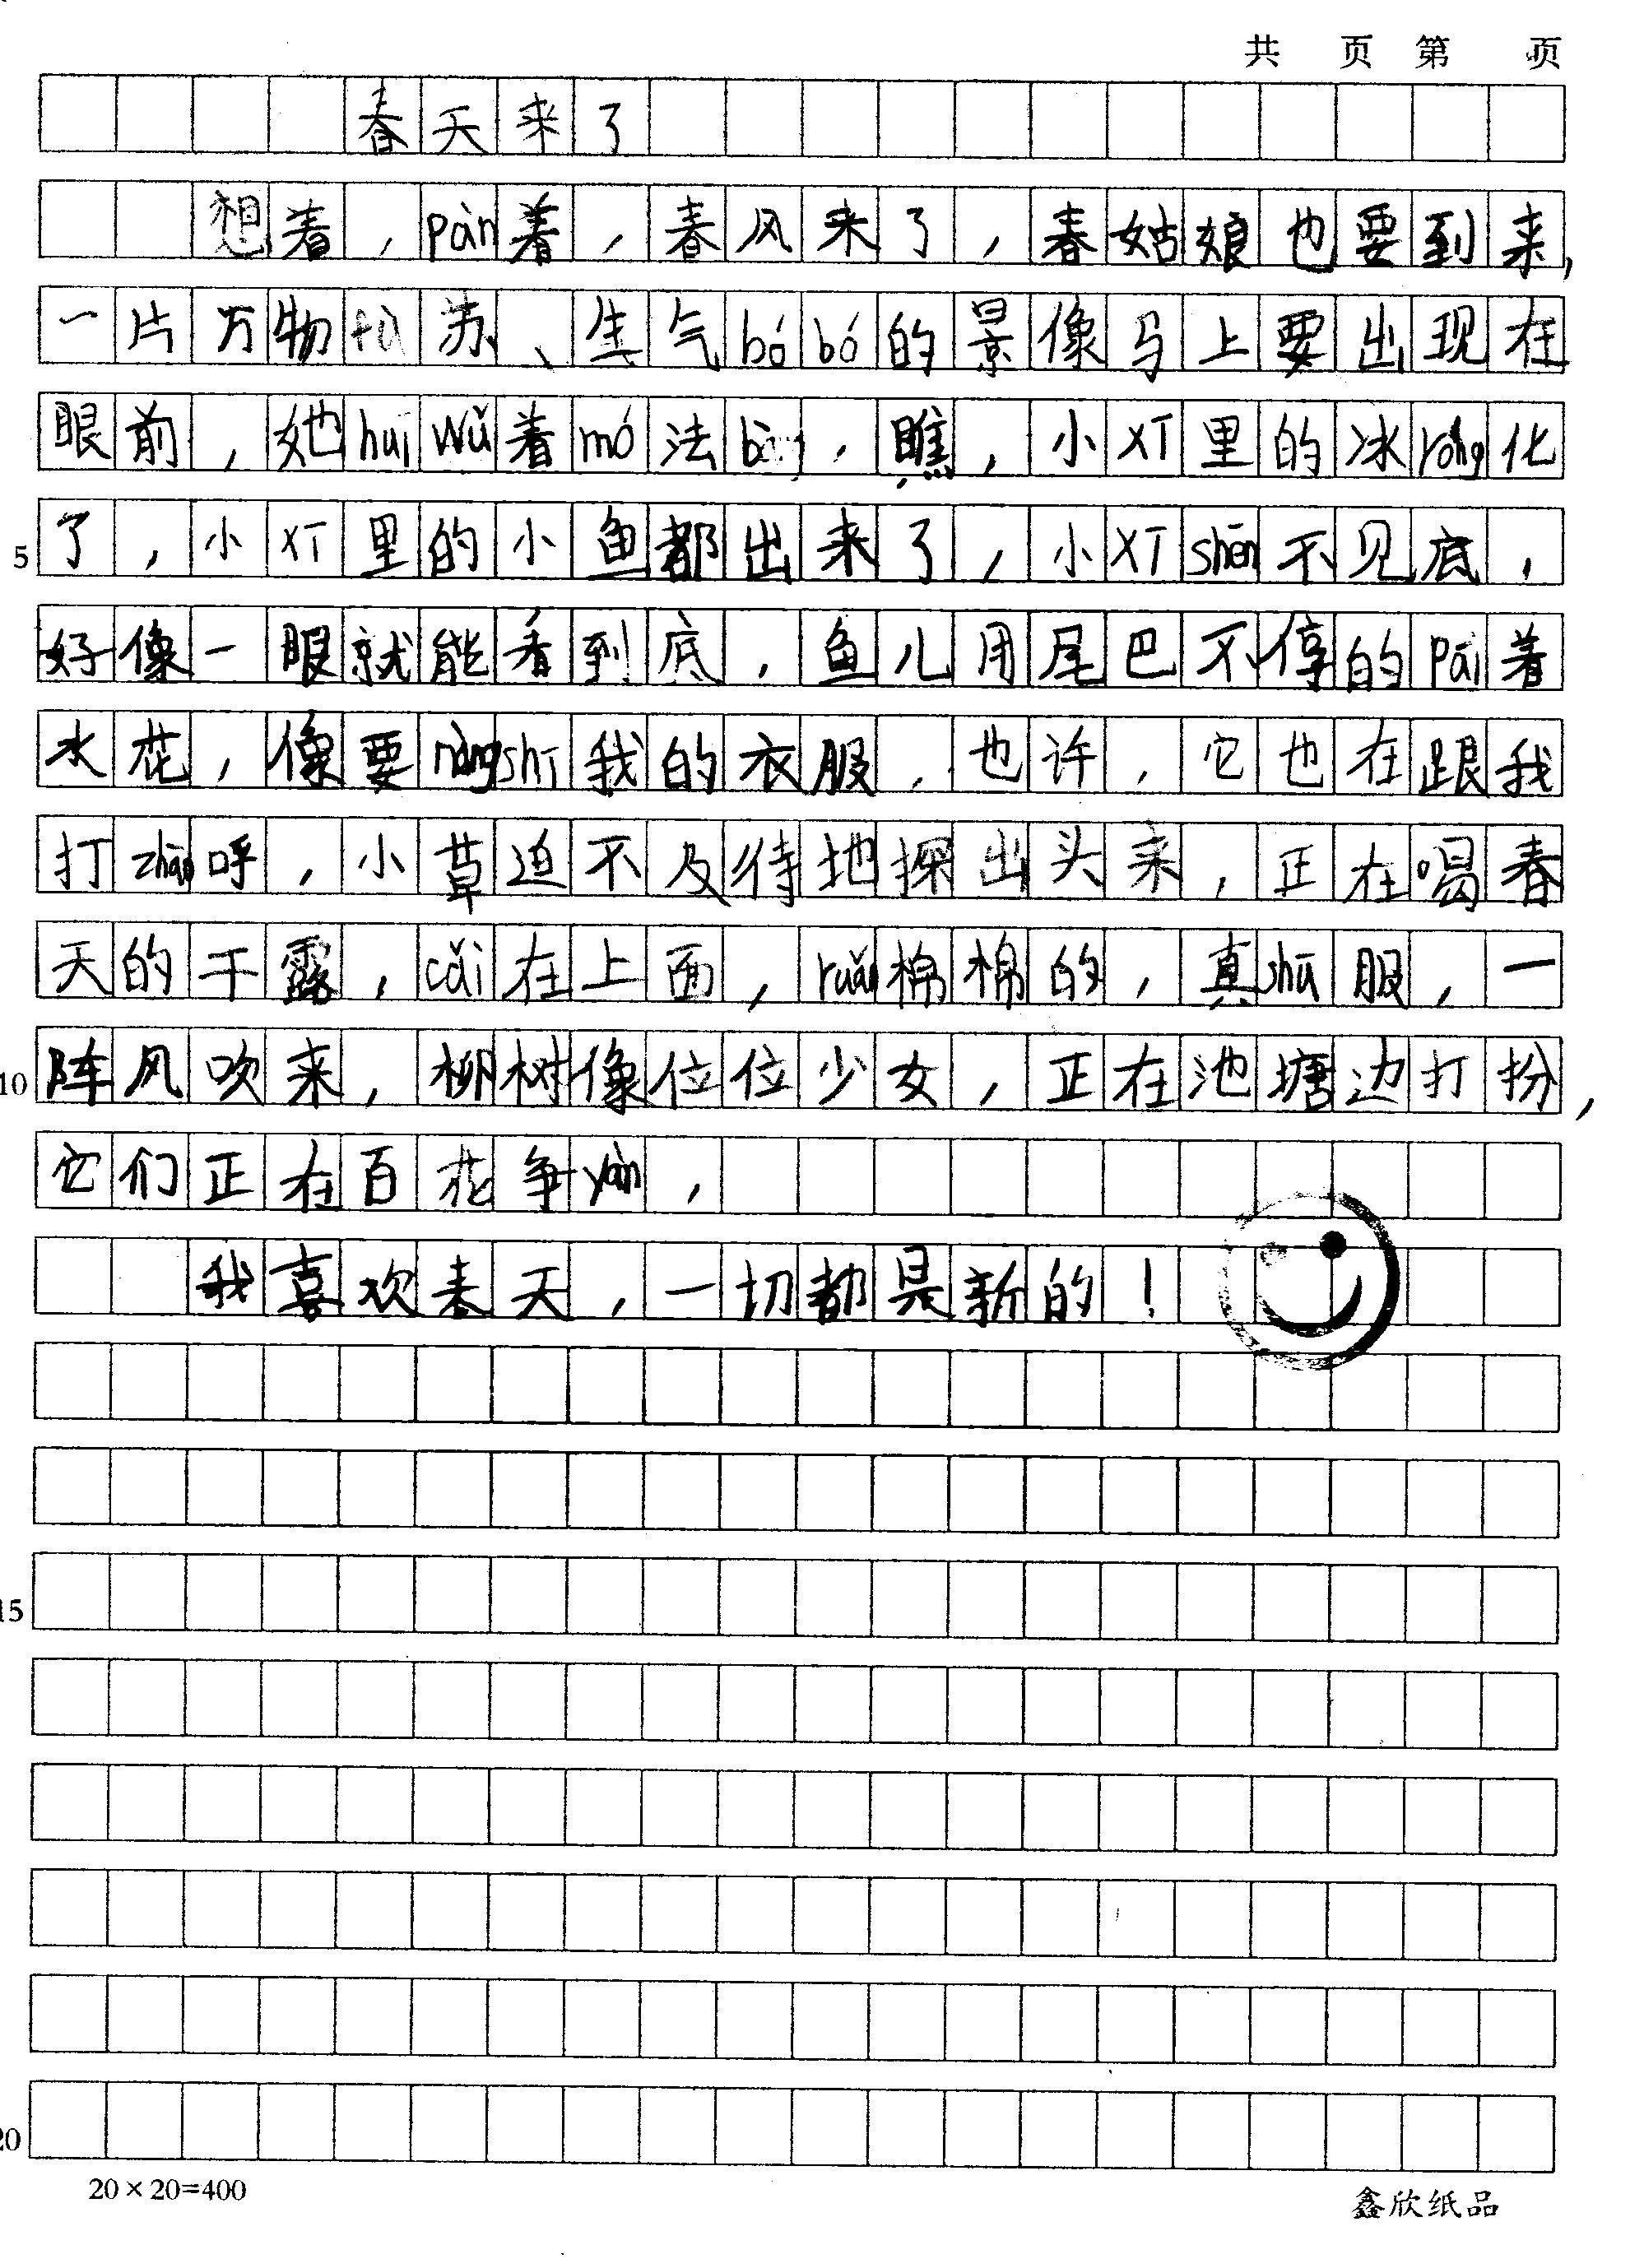 共 页 第 页
春天来了
想着，pàn着，春风来了，春姑娘也要到来，
一片万物fù苏、生气bóbó的景像马上要出现在
眼前，她huīwǔ着mó法bàng，瞧，小xī里的冰róng化
了，小xī里的小鱼都出来了，小xīshēn不见底，
好像一眼就能看到底，鱼儿用尾巴不停的pāi着
水花，像要nòngshī我的衣服，也许，它也在跟我
打zhāo呼，小草迫不及待地探出头来，正在喝春
天的干露，cǎi在上面，ruǎn棉棉的，真shū服，一
阵风吹来，柳树像位位少女，正在池塘边打扮，
它们正在百花争yàn，
我喜欢春天，一切都是新的！
5
10
15
20
20×20=400
鑫欣纸品